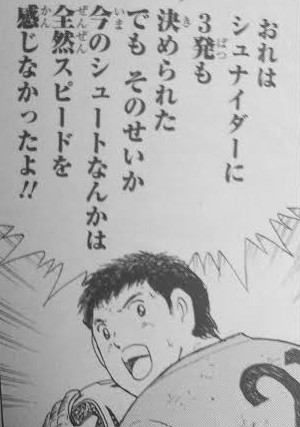 おれは
シュナイダーに
3発も
決められた
でも そのせいか
今のシュートなんかは
全然スピードを
感じなかったよ!!